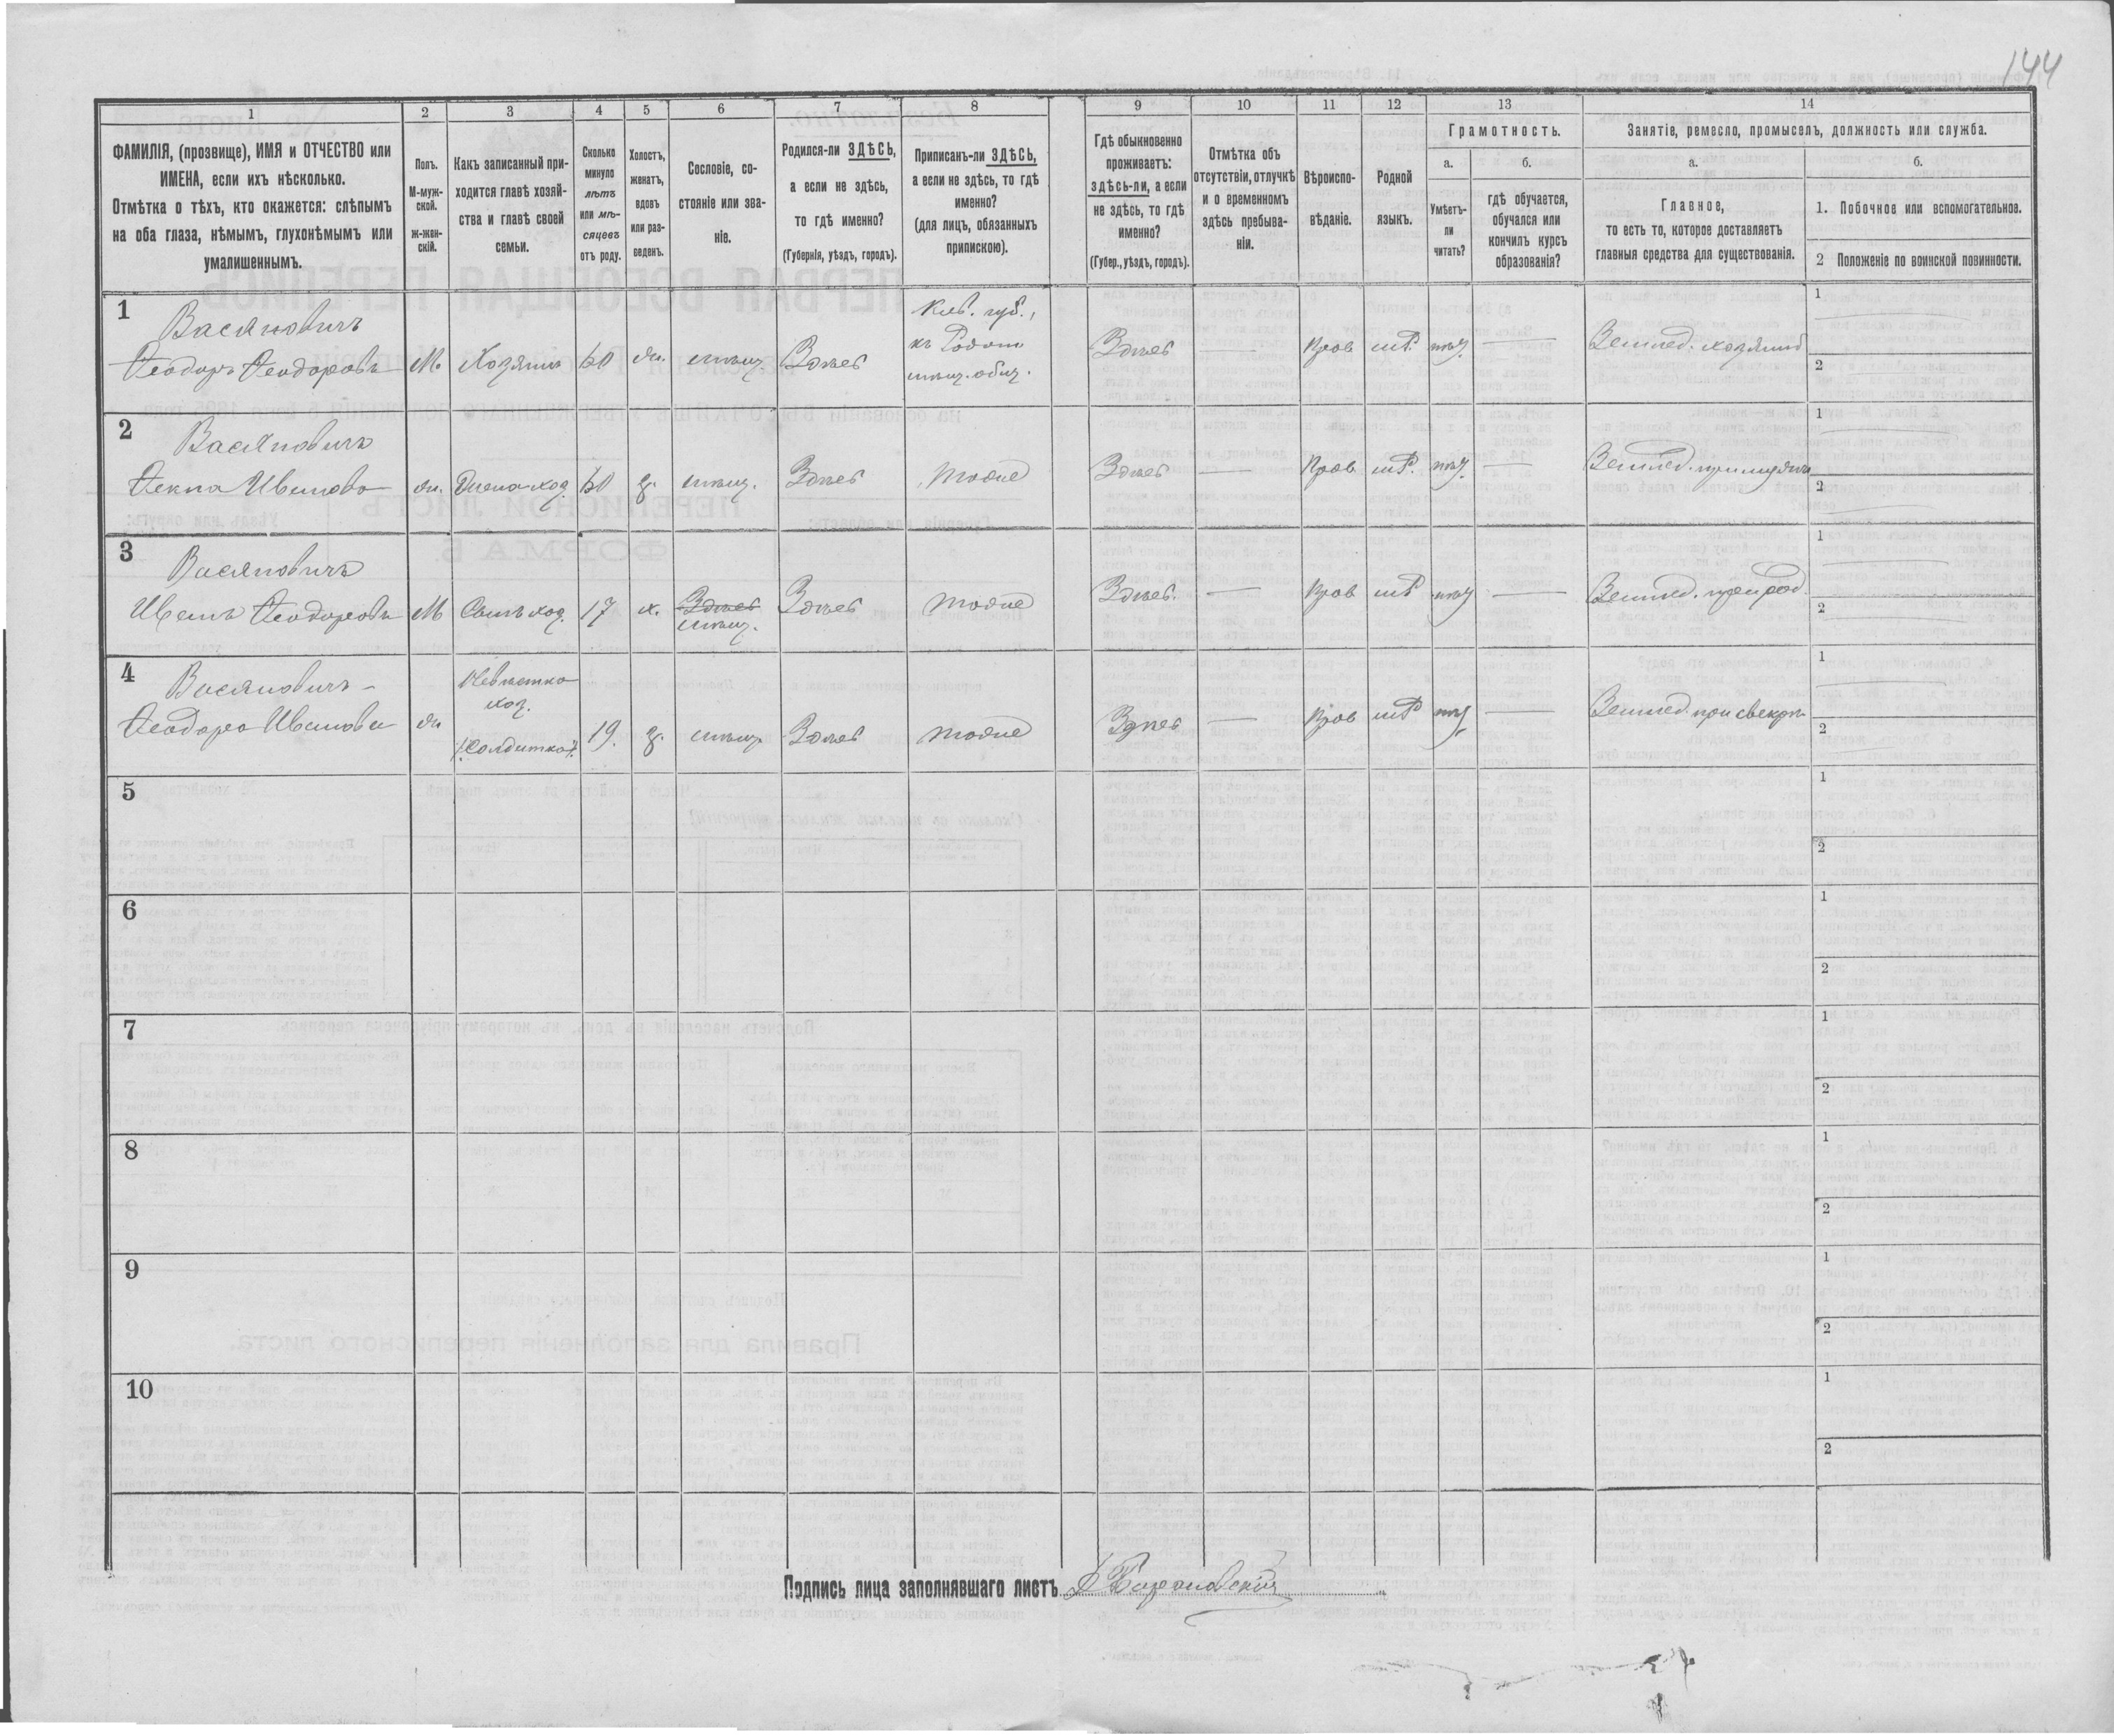 144
1
2
3
4
5
6
7
8
9
10
11
12
13
14
ФАМИЛІЯ, (прозвище), ИМЯ и ОТЧЕСТВО или
ИМЕНА, если ихъ нѣсколько.
Отмѣтка о тѣхъ, кто окажется: слѣпымъ
на оба глаза, нѣмымъ, глухонѣмымъ или
умалишеннымъ.
Полъ.
М-муж-
ской.
ж-жен-
скій.
Какъ записанный при-
ходится главѣ хозяй-
ства и главѣ своей
семьи.
Сколько
минуло
лѣтъ
или мѣ-
сяцевъ
отъ роду.
Холостъ,
женатъ,
вдовъ
или раз-
веденъ.
Сословіе, со-
стояніе или зва-
ніе.
Родился-ли ЗДѢСЬ,
а если не здѣсь,
то гдѣ именно?
(Губернія, уѣздъ, городъ).
Приписанъ-ли ЗДѢСЬ,
а если не здѣсь, то гдѣ
именно?
(для лицъ, обязанныхъ
припискою).
Гдѣ обыкновенно
проживаетъ:
здѣсь-ли, а если
не здѣсь, то гдѣ
именно?
(Губер., уѣздъ, городъ).
Отмѣтка объ
отсутствіи, отлучкѣ
и о временномъ
здѣсь пребыва-
ніи.
Вѣроиспо-
вѣданіе.
Родной
языкъ.
Грамотность.
а.
Умѣетъ-
ли
читать?
б.
гдѣ обучается,
обучался или
кончилъ курсъ
образованія?
Занятіе, ремесло, промыселъ, должность или служба.
а.
Главное,
то есть то, которое доставляетъ
главныя средства для существованія.
б.
1. Побочное или вспомогательное.
2 Положеніе по воинской повинности.
1
Васяновичъ
Ѳеодоръ Ѳеодоровъ
М.
Хозяинъ
60
жн.
мѣщ.
Здѣсь
Кіев. губ.,
къ
мѣщ. общ.
Здѣсь
—
Прав
—
Земмед. хозяинъ
1
2
2
Васяновичъ
Ѳекла Иванова
жн.
Жена хоз.
60
з.
мѣщ.
Здѣсь
тоже
Здѣсь
—
Прав
Землед. при мужѣ
1
2
3
Васяновичъ
Иванъ Ѳеодоровъ
М
Сынъ хоз.
17
х.
Здѣсь
мѣщ.
Здѣсь
тоже
Здѣсь.
—
Прав
—
Землед. при род.
1
2
4
Васяновичъ
Ѳеодора Иванова
жн
Невѣстка
хоз.
(Солдатка).
19.
з.
мѣщ.
Здѣсь
тоже
Здѣсь
—
Прав
—
Землед. при свекрѣ
1
2
5
1
2
6
1
2
7
1
2
8
1
2
9
1
2
10
1
2
Подпись лица заполнявшаго листъ